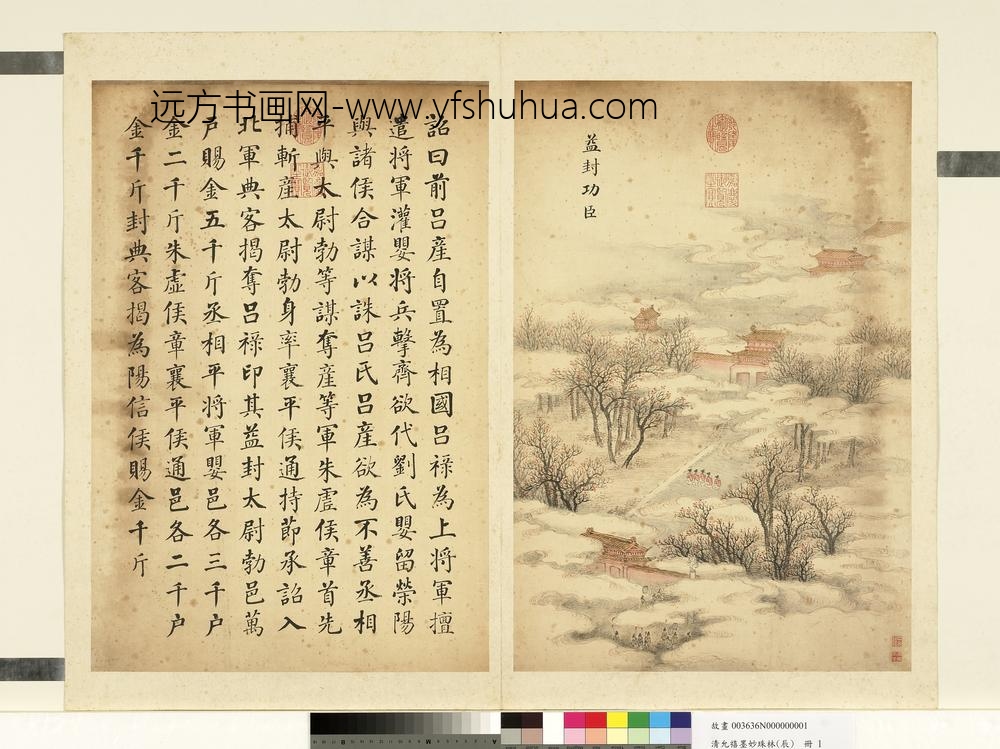 远方书画网-www.yfshuhua.com
益封功臣
詔曰前呂產自置為相國呂祿為上將軍擅
遣將軍灌嬰將兵擊齊欲代劉氏嬰留榮陽
與諸侯合謀以誅呂氏呂產欲為不善丞相
平與太尉勃等謀奪產等軍朱虛侯章首先
捕斬產太尉勃身率襄平侯通持節承詔入
北軍典客揭奪呂祿印其益封太尉勃邑萬
戶賜金五千斤丞相平將軍嬰邑各三千戶
金二千斤朱虛侯章襄平侯通邑各二千戶
金千斤封典客揭為陽信侯賜金千斤
故畫 003636N000000001
清允禧墨妙珠林(辰) 冊 1